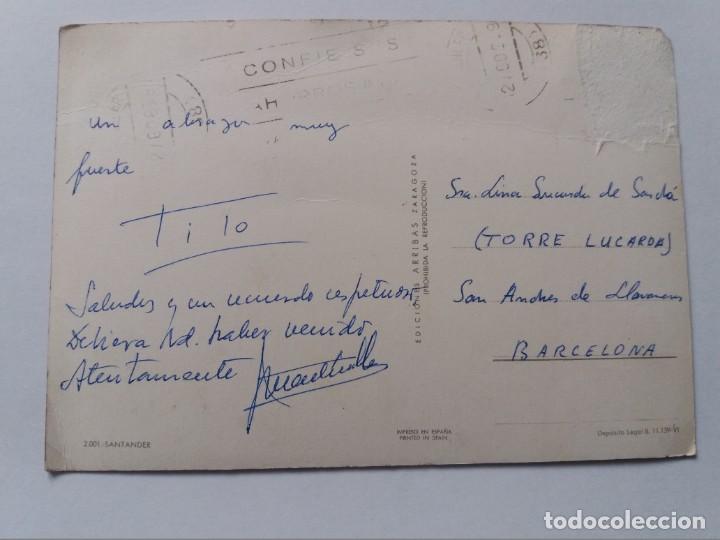 CONFIE SUS
Un abrazo muy
fuerte
Tito
Saludos y un recuerdo respetuoso
Debiera Vd. haber venido
Atentamente
2.001.-SANTANDER
EDICIONES ARRIBAS ZARAGOZA
(PROHIBIDA LA REPRODUCCION)
IMPRESO EN ESPAÑA
PRINTED IN SPAIN
Sra. Lina de Sardá
(TORRE LUCARDA)
San Andres de Llavaneras
BARCELONA
Depósito Legal B.
todocoleccion
todocoleccion.net